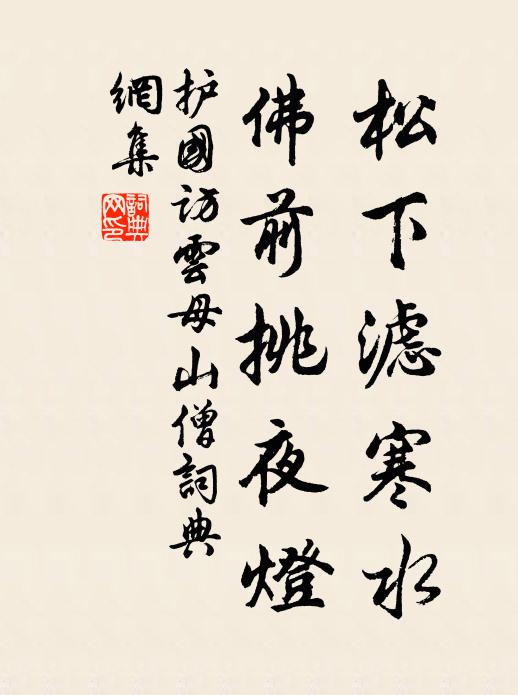 松下滤寒水
佛前挑夜燈
护國访雲母山僧詞典
網集
詞典
网印